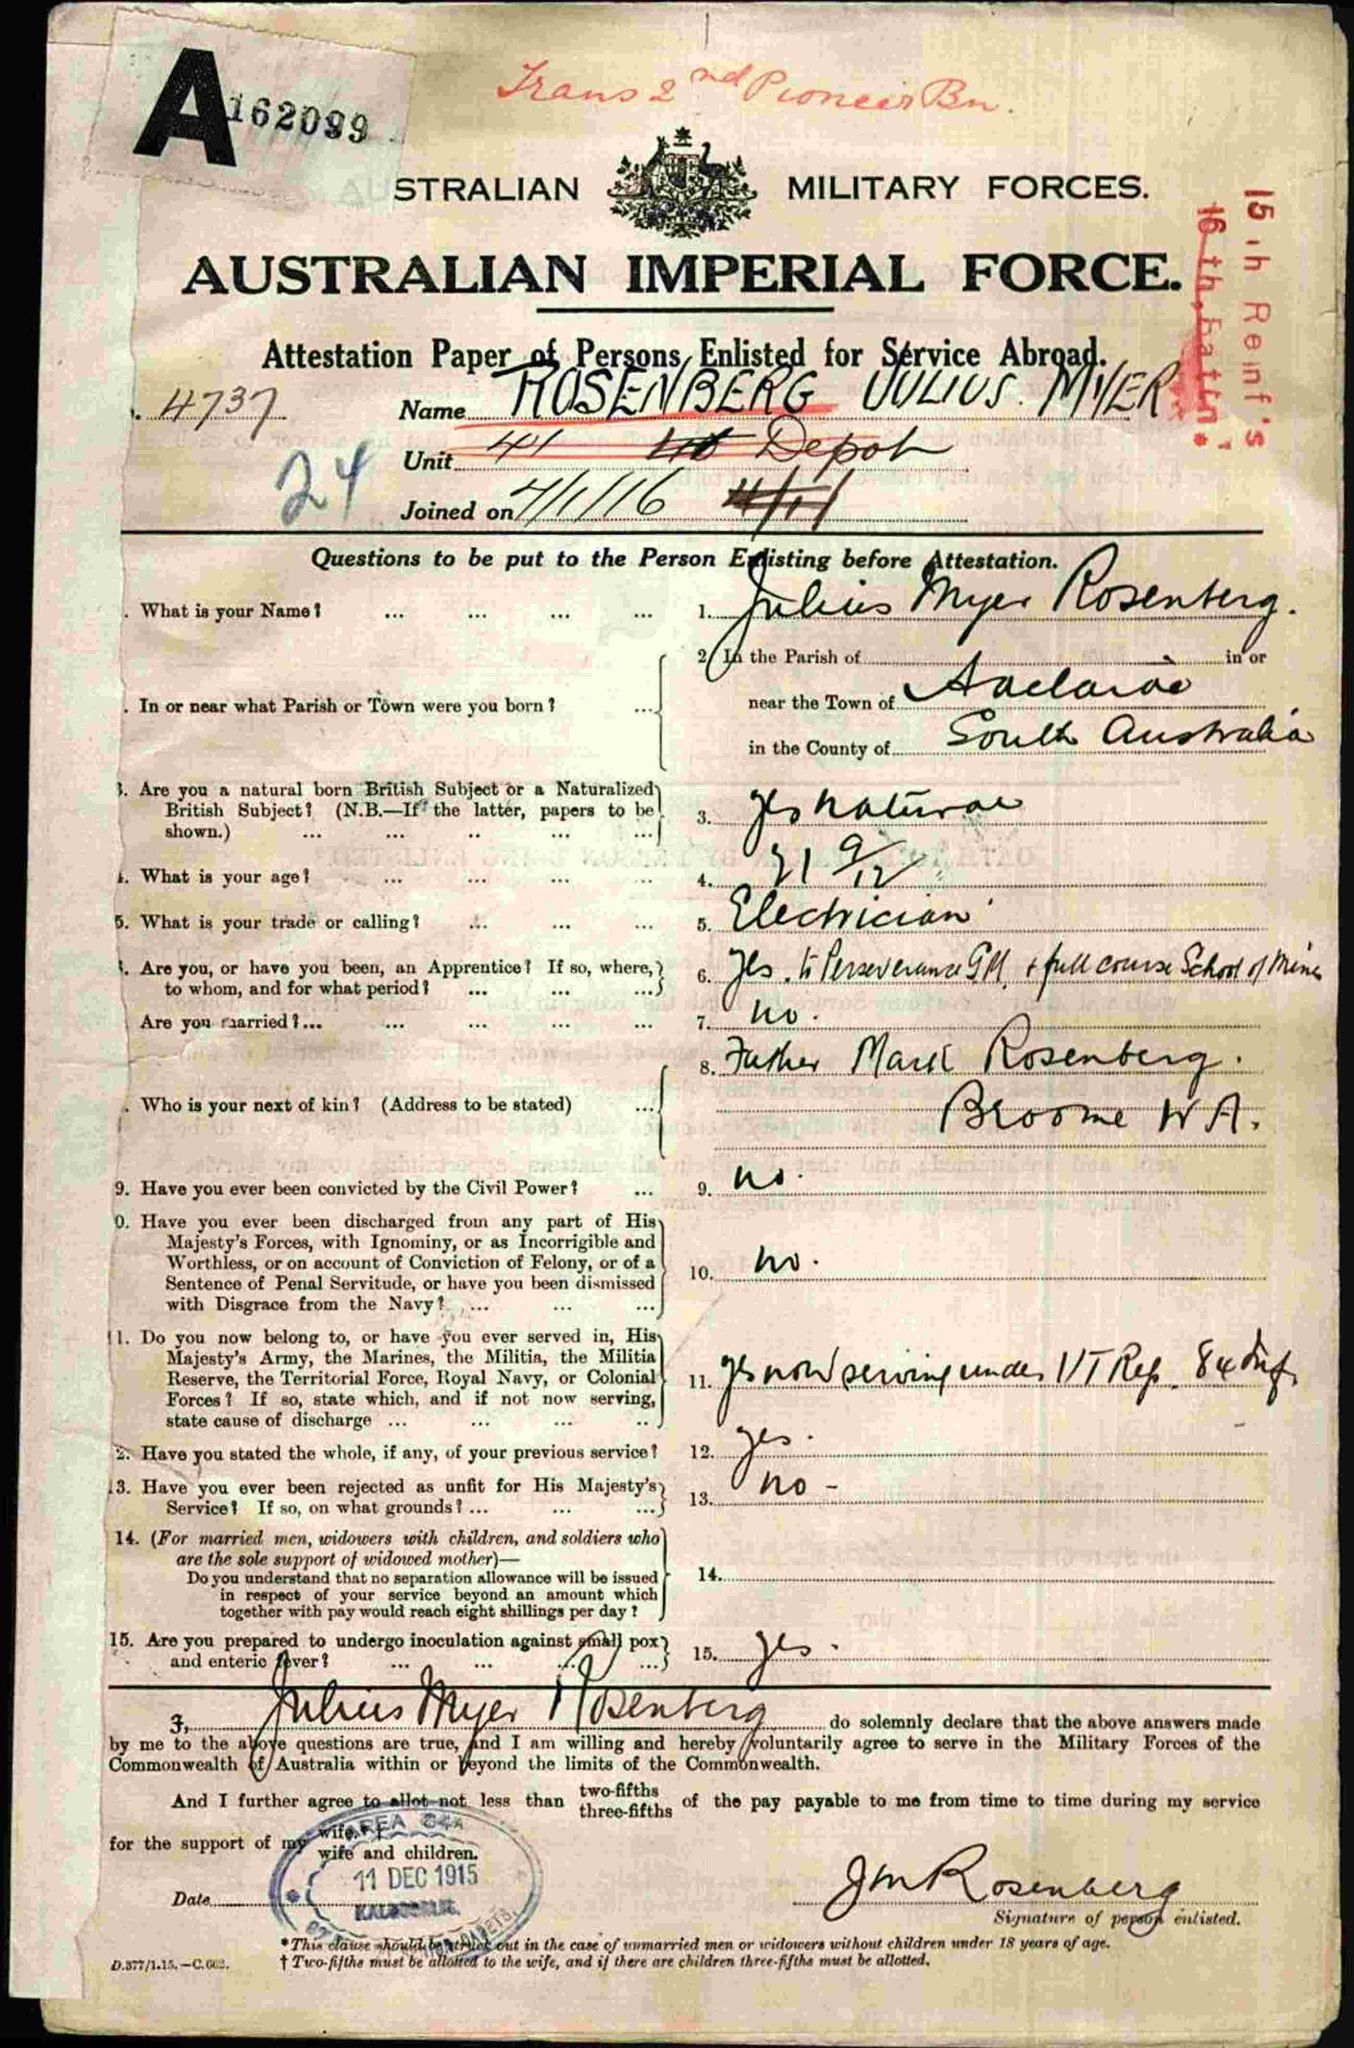 Trans 2nd Pioneir Bn.
A 162099
AUSTRALIAN MILITARY FORCES.
15th Reinf's
16th Battn.
AUSTRALIAN IMPERIAL FORCE.
Attestation Paper of Persons Enlisted for Service Abroad.
. 4737 Name ROSENBERG JULIUS. MYER
24 Unit 41 Depot
Joined on 4/1/16 4/1/
Questions to be put to the Person Enlisting before Attestation.
. What is your Name? ... ... ... ... 1. Julius Myer Rosenberg.
2. In the Parish of in or
. In or near what Parish or Town were you born? ... near the Town of Adelaide
in the County of South Australia
3. Are you a natural born British Subject or a Naturalized
British Subject? (N.B.—If the latter, papers to be 3. yes natural
shown.) ... ... .. ... ...
4. What is your age? ... ... ... ... 4. 21 9/12
5. What is your trade or calling? ... ... ... 5. Electrician
. Are you, or have you been, an Apprentice? If so, where, 6. yes. to Perseverance GM. + full course School of Mines
to whom, and for what period? ... ... ...
Are you married?... ... ... ... 7. no.
8. Father Mark Rosenberg.
. Who is your next of kin? (Address to be stated) ... Broome W A.
9. Have you ever been convicted by the Civil Power? ... 9. no.
0. Have you ever been discharged from any part of His
Majesty's Forces, with Ignominy, or as Incorrigible and
Worthless, or on account of Conviction of Felony, or of a 10. no.
Sentence of Penal Servitude, or have you been dismissed
with Disgrace from the Navy? ... ... ...
11. Do you now belong to, or have you ever served in, His
Majesty's Army, the Marines, the Militia, the Militia
Reserve, the Territorial Force, Royal Navy, or Colonial 11. yes now serving under U T Reg. 84 Inf.
Forces? If so, state which, and if not now serving,
state cause of discharge ... ... ... ..
2. Have you stated the whole, if any, of your previous service? 12. yes.
13. Have you ever been rejected as unfit for His Majesty's 13. no -
Service? If so, on what grounds? ... ... ...
14. (For married men, widowers with children, and soldiers who
are the sole support of widowed mother)—
Do you understand that no separation allowance will be issued 14.
in respect of your service beyond an amount which
together with pay would reach eight shillings per day?
15. Are you prepared to undergo inoculation against small pox 15. yes.
and enteric fever? ... ... ... ...
I, Julius Myer Rosenberg do solemnly declare that the above answers made
by me to the above questions are true, and I am willing and hereby voluntarily agree to serve in the Military Forces of the
Commonwealth of Australia within or beyond the limits of the Commonwealth.
And I further agree to allot not less than two-fifths three-fifths of the pay payable to me from time to time during my service
for the support of my wife.* †
wife and children.
AREA 84A
11 DEC 1915
KALGOORLIE.
Date J M Rosenberg
Signature of person enlisted.
*This clause should be struck out in the case of unmarried men or widowers without children under 18 years of age.
D.377/1.15.—C.662. † Two-fifths must be allotted to the wife, and if there are children three-fifths must be allotted.